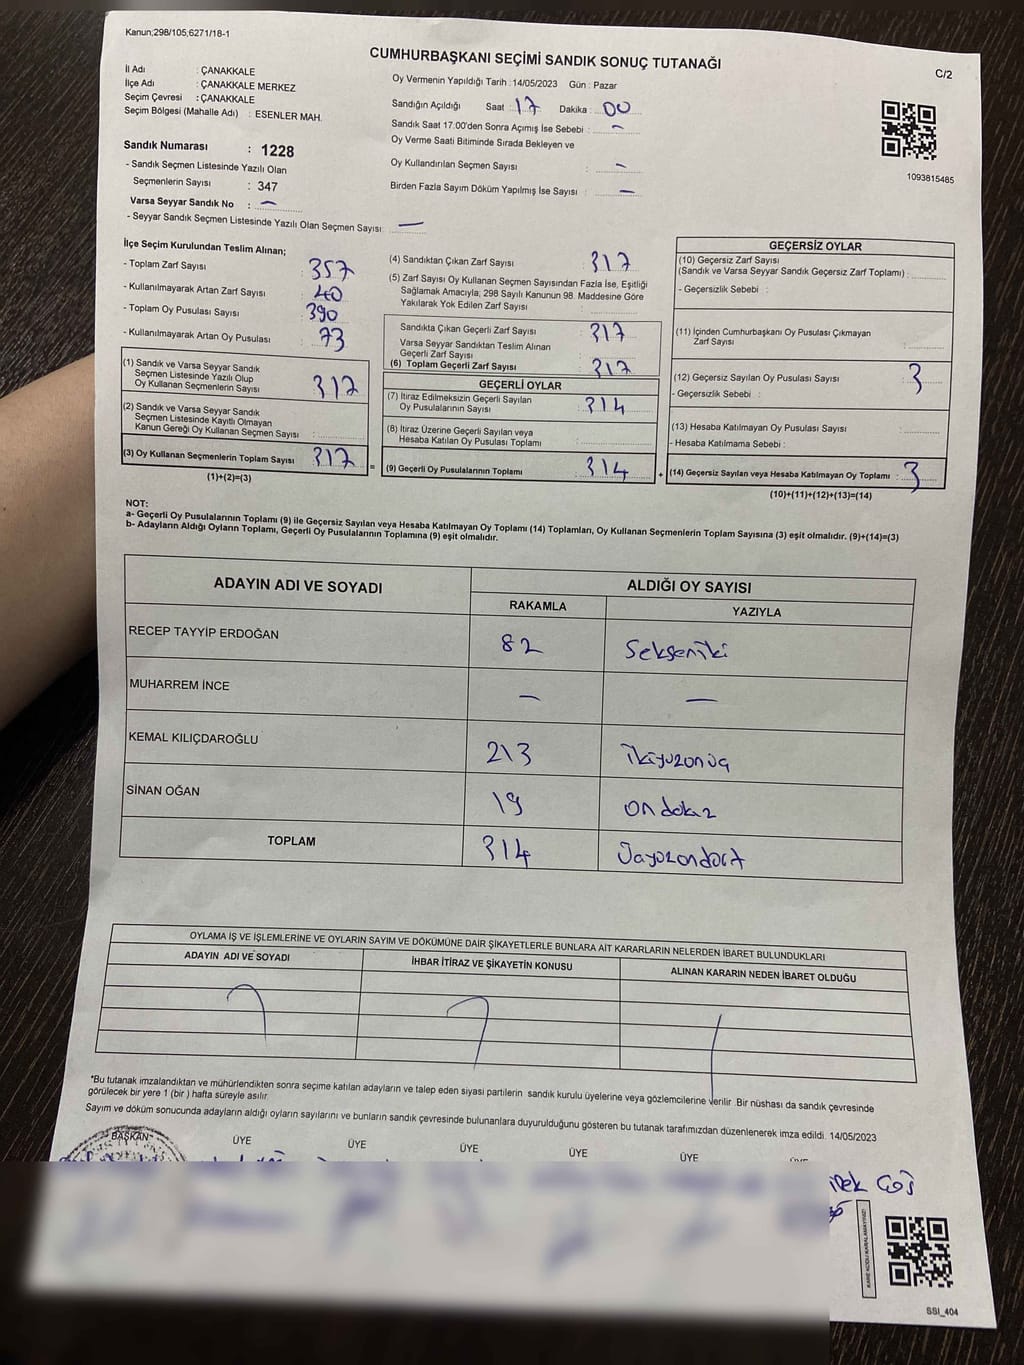 Kanun;298/105;6271/18-1
CUMHURBAŞKANI SEÇİMİ SANDIK SONUÇ TUTANAĞI
C/2
İl Adı : ÇANAKKALE
İlçe Adı : ÇANAKKALE MERKEZ
Seçim Çevresi : ÇANAKKALE
Seçim Bölgesi (Mahalle Adı) : ESENLER MAH.
Sandık Numarası : 1228
- Sandık Seçmen Listesinde Yazılı Olan
Seçmenlerin Sayısı : 347
Varsa Seyyar Sandık No : –
- Seyyar Sandık Seçmen Listesinde Yazılı Olan Seçmen Sayısı: —
Oy Vermenin Yapıldığı Tarih : 14/05/2023 Gün : Pazar
Sandığın Açıldığı Saat : 17 Dakika : 00
Sandık Saat 17.00'den Sonra Açımış İse Sebebi : –
Oy Verme Saati Bitiminde Sırada Bekleyen ve
Oy Kullandırılan Seçmen Sayısı : –
Birden Fazla Sayım Döküm Yapılmış İse Sayısı : –
1093815485
İlçe Seçim Kurulundan Teslim Alınan;
- Toplam Zarf Sayısı : 357
- Kullanılmayarak Artan Zarf Sayısı : 40
- Toplam Oy Pusulası Sayısı : 390
- Kullanılmayarak Artan Oy Pusulası : 73
(1) Sandık ve Varsa Seyyar Sandık
Seçmen Listesinde Yazılı Olup
Oy Kullanan Seçmenlerin Sayısı : 317
(2) Sandık ve Varsa Seyyar Sandık
Seçmen Listesinde Kayıtlı Olmayan
Kanun Gereği Oy Kullanan Seçmen Sayısı :
(3) Oy Kullanan Seçmenlerin Toplam Sayısı : 317
(1)+(2)=(3)
(4) Sandıktan Çıkan Zarf Sayısı : 317
(5) Zarf Sayısı Oy Kullanan Seçmen Sayısından Fazla İse, Eşitliği
Sağlamak Amacıyla, 298 Sayılı Kanunun 98. Maddesine Göre
Yakılarak Yok Edilen Zarf Sayısı :
Sandıkta Çıkan Geçerli Zarf Sayısı : 317
Varsa Seyyar Sandıktan Teslim Alınan
Geçerli Zarf Sayısı :
(6) Toplam Geçerli Zarf Sayısı : 317
GEÇERLİ OYLAR
(7) İtiraz Edilmeksizin Geçerli Sayılan
Oy Pusulalarının Sayısı : 314
(8) İtiraz Üzerine Geçerli Sayılan veya
Hesaba Katılan Oy Pusulası Toplamı :
= (9) Geçerli Oy Pusulalarının Toplamı : 314
GEÇERSİZ OYLAR
(10) Geçersiz Zarf Sayısı
(Sandık ve Varsa Seyyar Sandık Geçersiz Zarf Toplamı) :
- Geçersizlik Sebebi :
(11) İçinden Cumhurbaşkanı Oy Pusulası Çıkmayan
Zarf Sayısı :
(12) Geçersiz Sayılan Oy Pusulası Sayısı : 3
- Geçersizlik Sebebi :
(13) Hesaba Katılmayan Oy Pusulası Sayısı :
- Hesaba Katılmama Sebebi :
+ (14) Geçersiz Sayılan veya Hesaba Katılmayan Oy Toplamı : 3
(10)+(11)+(12)+(13)=(14)
NOT:
a- Geçerli Oy Pusulalarının Toplamı (9) ile Geçersiz Sayılan veya Hesaba Katılmayan Oy Toplamı (14) Toplamları, Oy Kullanan Seçmenlerin Toplam Sayısına (3) eşit olmalıdır. (9)+(14)=(3)
b- Adayların Aldığı Oyların Toplamı, Geçerli Oy Pusulalarının Toplamına (9) eşit olmalıdır.
ADAYIN ADI VE SOYADI ALDIĞI OY SAYISI
RAKAMLA YAZIYLA
RECEP TAYYİP ERDOĞAN 82 Sekseniki
MUHARREM İNCE – —
KEMAL KILIÇDAROĞLU 213 İkiyüzonüç
SİNAN OĞAN 19 ondokuz
TOPLAM 314 Üçyüzondört
OYLAMA İŞ VE İŞLEMLERİNE VE OYLARIN SAYIM VE DÖKÜMÜNE DAİR ŞİKAYETLERLE BUNLARA AİT KARARLARIN NELERDEN İBARET BULUNDUKLARI
ADAYIN ADI VE SOYADI İHBAR İTİRAZ VE ŞİKAYETİN KONUSU ALINAN KARARIN NEDEN İBARET OLDUĞU
*Bu tutanak imzalandıktan ve mühürlendikten sonra seçime katılan adayların ve talep eden siyasi partilerin sandık kurulu üyelerine veya gözlemcilerine verilir .Bir nüshası da sandık çevresinde
görülecek bir yere 1 (bir ) hafta süreyle asılır.
Sayım ve döküm sonucunda adayların aldığı oyların sayılarını ve bunların sandık çevresinde bulunanlara duyurulduğunu gösteren bu tutanak tarafımızdan düzenlenerek imza edildi. 14/05/2023
BAŞKAN ÜYE ÜYE ÜYE ÜYE ÜYE
KARE KODU KARALAMAYINIZ!
SSI_404